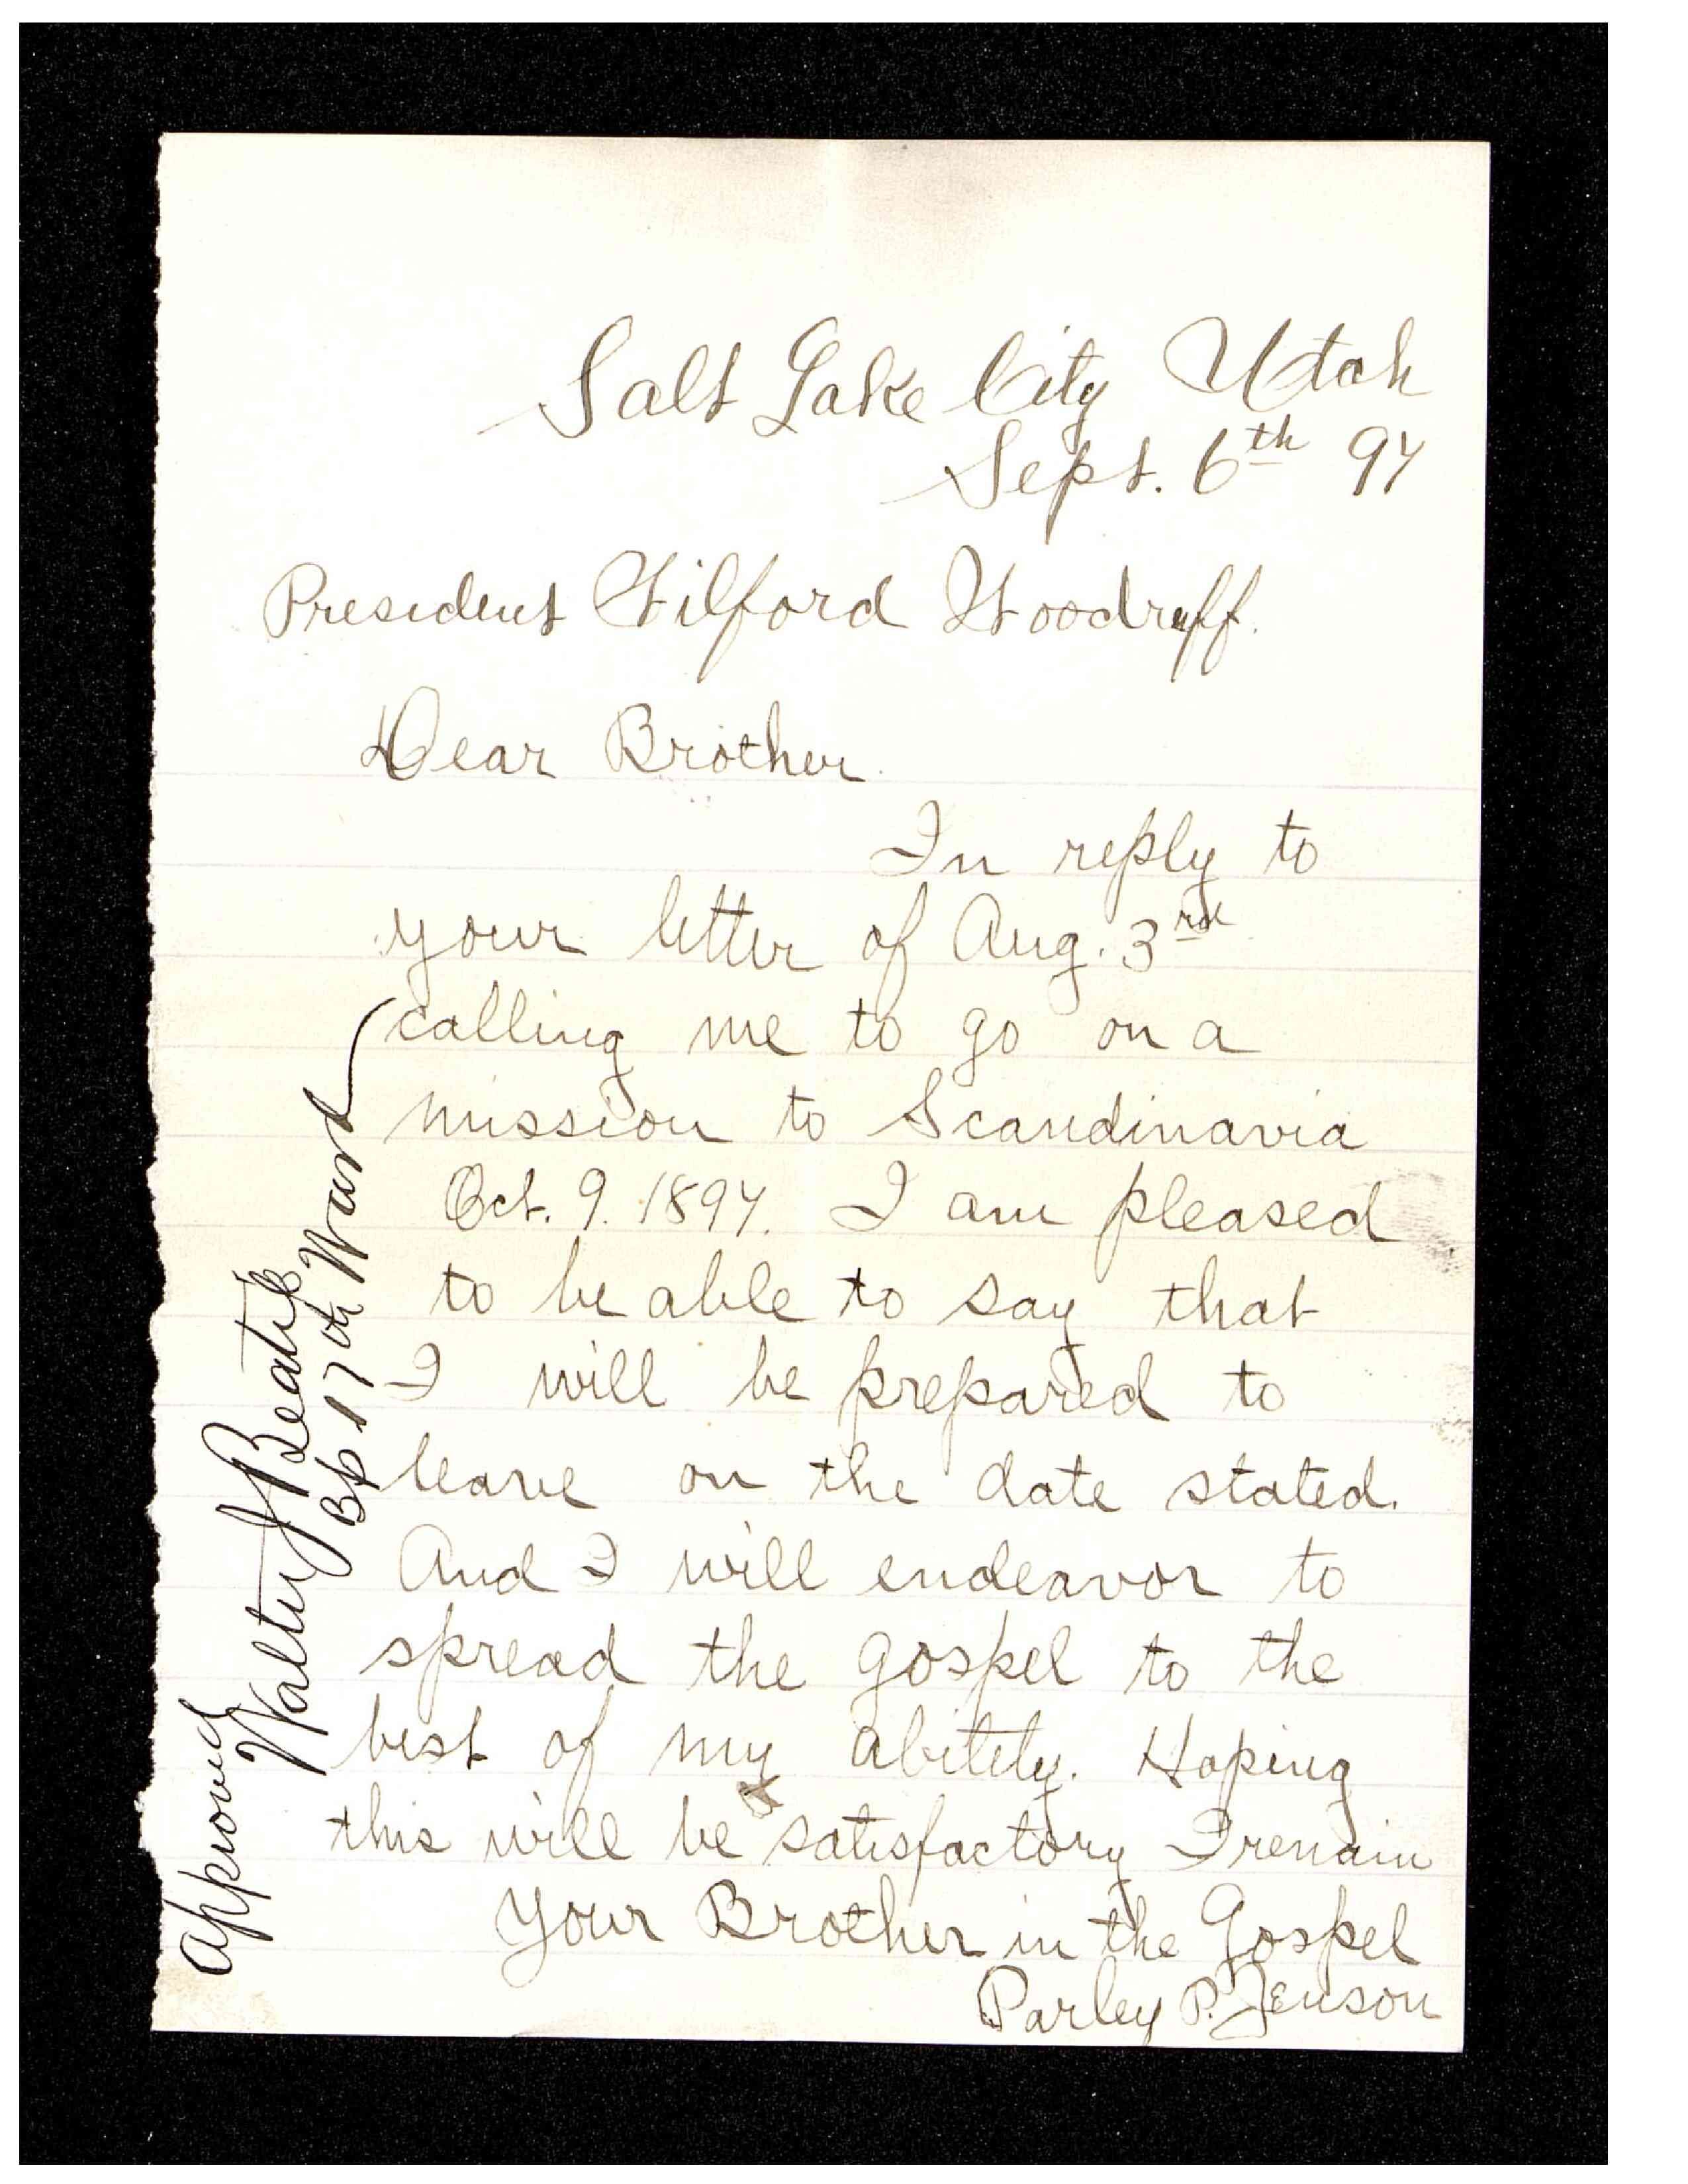 Salt Lake City Utah
Sept. 6th 97
President Wilford Woodruff.
Dear Brother
In reply to
your letter of Aug. 3rd
calling me to go on a
mission to Scandinavia
Oct. 9. 1897. I am pleased
to be able to say that
I will be prepared to
leave on the date stated.
And I will endeavor to
spread the gospel to the
best of my abitity. Hoping
this will be satisfactory I remain
Your Brother in the Gospel
Parley P. Jenson
Approved
Walter J Beatie
Bp 17th Ward